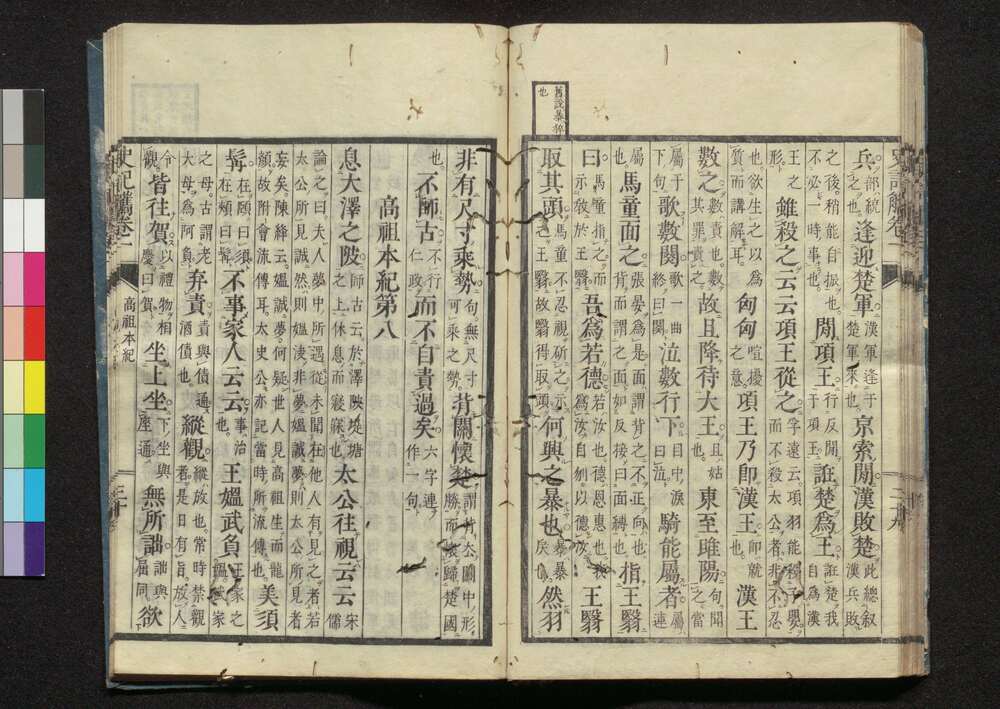 舊說暴猝
也
兵部統之也逢迎楚軍漢軍逢于楚軍來也京索閒漢敗楚此總敘漢兵敗
之後稍能自振也不必一時事也閒項王行反閒于項王誑楚爲王誑楚我自爲漢
王之形雖殺之云云項王從之字遠云項羽能獨而不殺太公者非不忍
也欲生之以爲質而講解耳匈匈喧擾之意項王乃卽漢王卽就也漢王
數之數責也數其罪責之故且降待大王且姑也東至睢陽句聞之當
屬下句于歌數闋歌一曲終曰闋泣數行下目中淚曰泣騎能屬者屬連
屬也馬童面之張晏爲是面謂背之不正向也背而謂之面如反接曰面縛也指王翳
曰馬童指之而示敎於王翳吾爲若德若汝也德恩惠也我爲汝自刎以德汝王翳
取其頭馬童不忍視斫之示之王翳故翳得取頭何與之暴也暴暴疾然羽
非有尺寸乘勢句無尺寸可乘之勢背關懷楚謂背厺關中形勝而懷歸楚國
也不師古不行仁政而不自責過矣六字連作一句
高祖本紀第八
息大澤之陂師古云於澤陂堤塘之上休息而寢寐也太公往視云云宋儒
論之曰夫人夢中所遇從未聞在他人有見之者若
太公所見誠然則媼決非夢媼誠夢則太公所見者
妄矣陳絳云媼誠夢何疑世人見高祖生而龍
顏故附會流傳耳太史公亦記當時所流傳也美須
髯在頤曰須在頰曰髯不事家人云云事治也王媼武負王家之媼武家
之母古謂老大母爲阿負弃責責與債通酒債也縱觀縱放也常時禁觀者是日有旨放人
令觀皆往賀以禮物相慶曰賀坐上坐下坐與座通無所詘詘與屈同欲
高祖本紀
三十
二十九